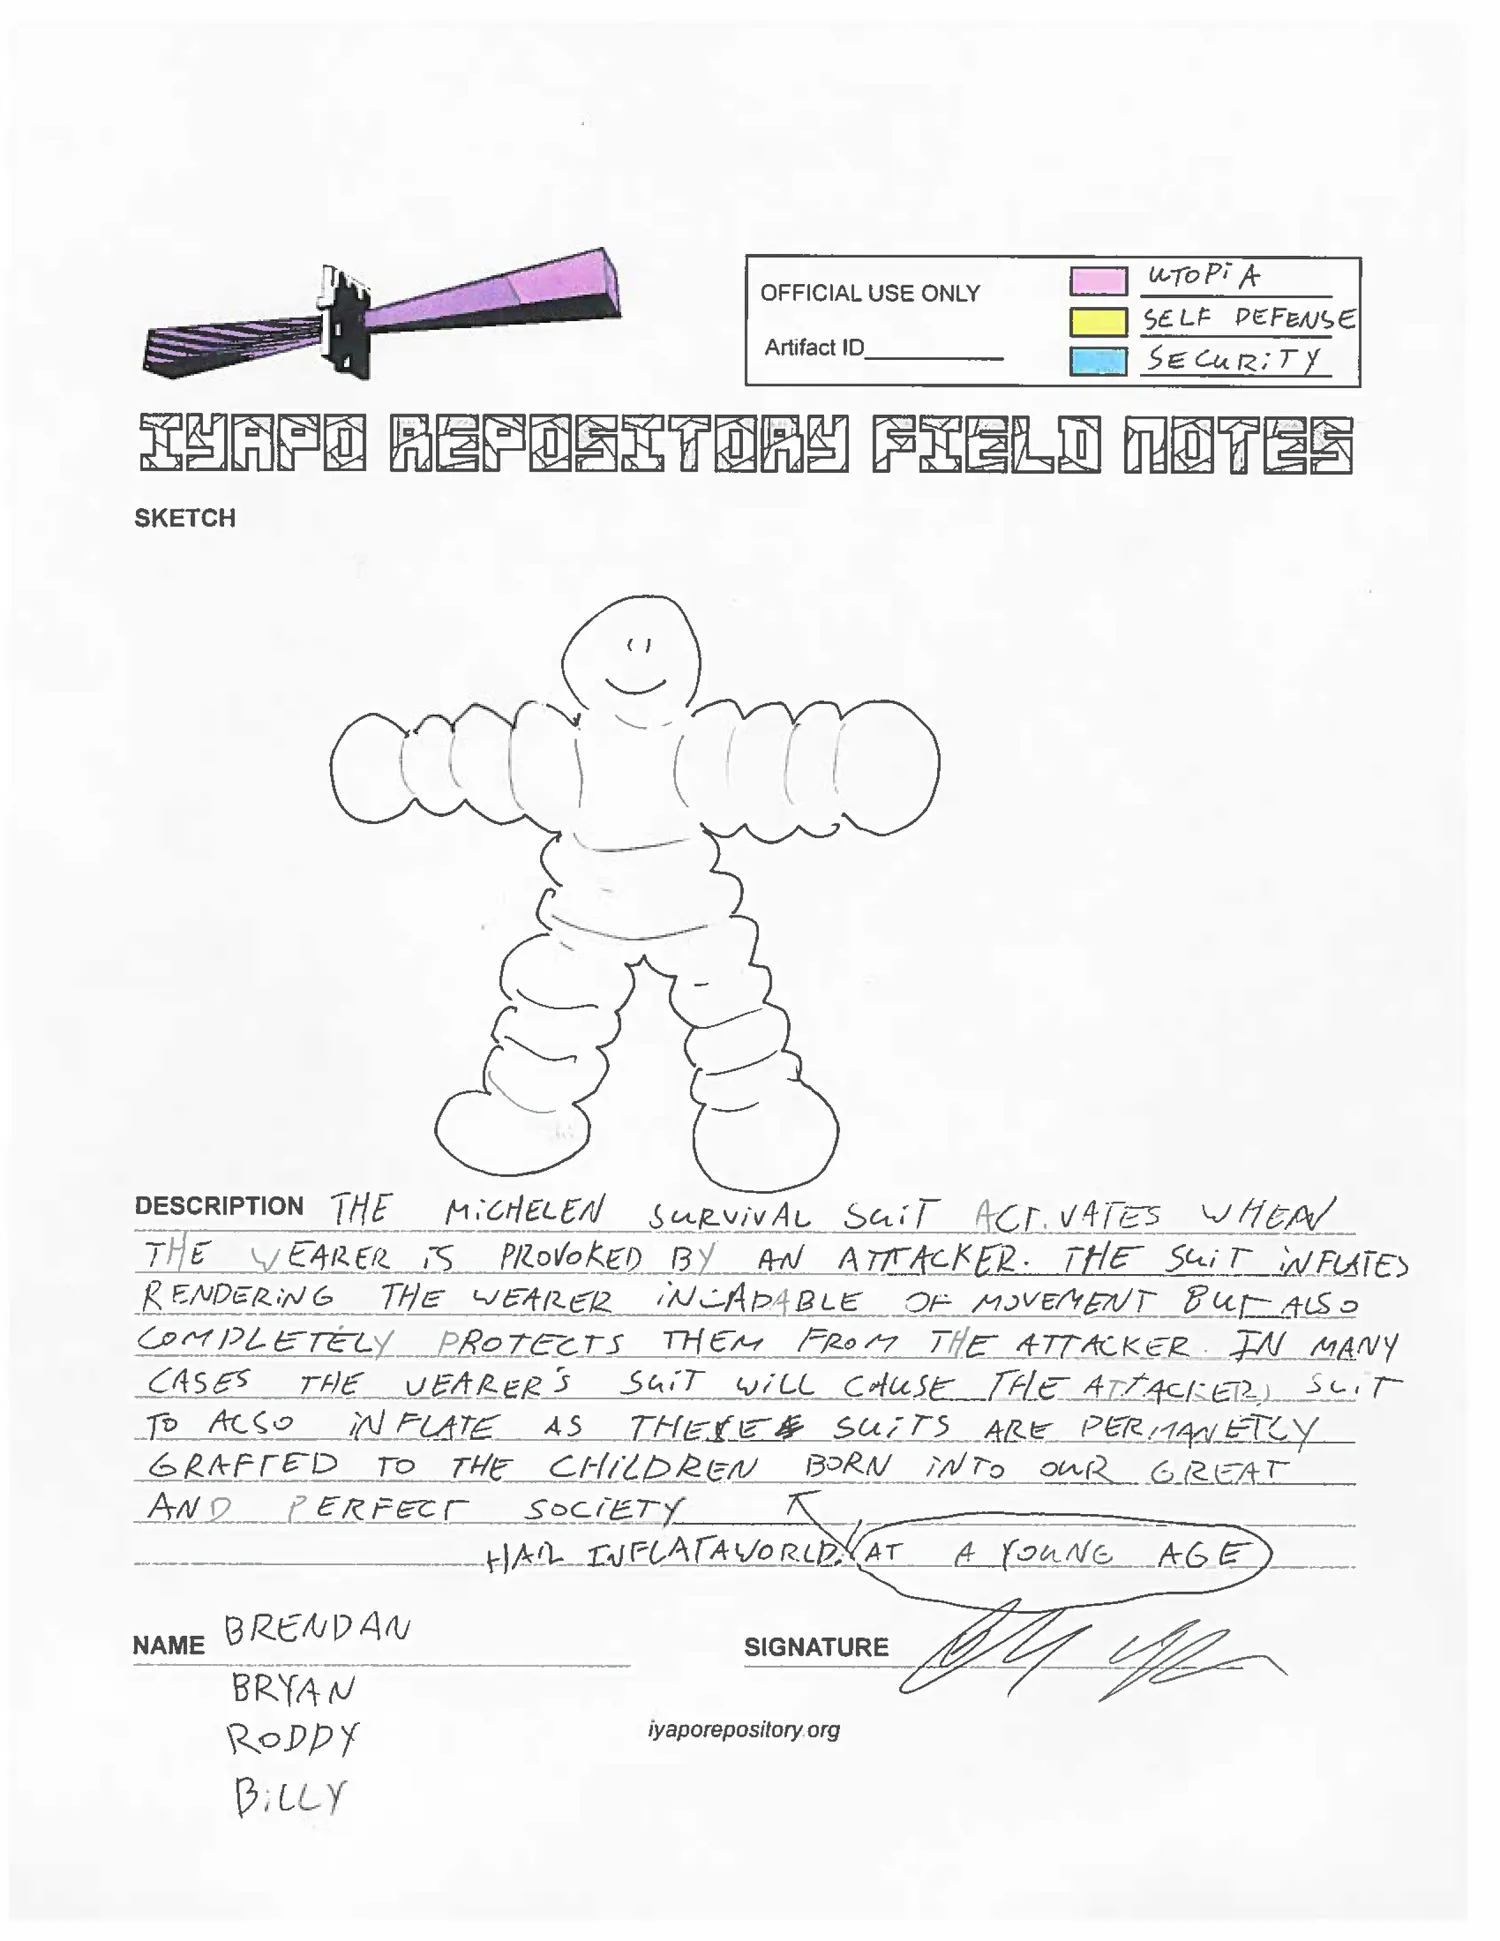 OFFICIAL USE ONLY
UTOPiA
SELF DEFENSE
Artifact ID
SECURiTY
IYAPO REPOSITORY FIELD NOTES
SKETCH
DESCRIPTION THE MiCHELEN SURViVAL SUiT ACTiVATES WHEN
THE WEARER iS PROVOKED BY AN ATTACKER. THE SUiT iNFLATES
RENDERiNG THE WEARER iNCAPABLE OF MOVEMENT BUT ALSO
COMPLETELY PROTECTS THEM FROM THE ATTACKER. IN MANY
CASES THE WEARER'S SUiT WiLL CAUSE THE ATTACKER'S SUiT
TO ALSO iNFLATE AS THESE SUiTS ARE PERMANETLY
GRAFTED TO THE CHiLDREN BORN iNTO OUR GREAT
AND PERFECT SOCiETY
HAIL INFLATAWORLD! AT A YOUNG AGE
NAME BRENDAN
SIGNATURE
BRYAN
RODDY
BiLLY
iyaporepository.org